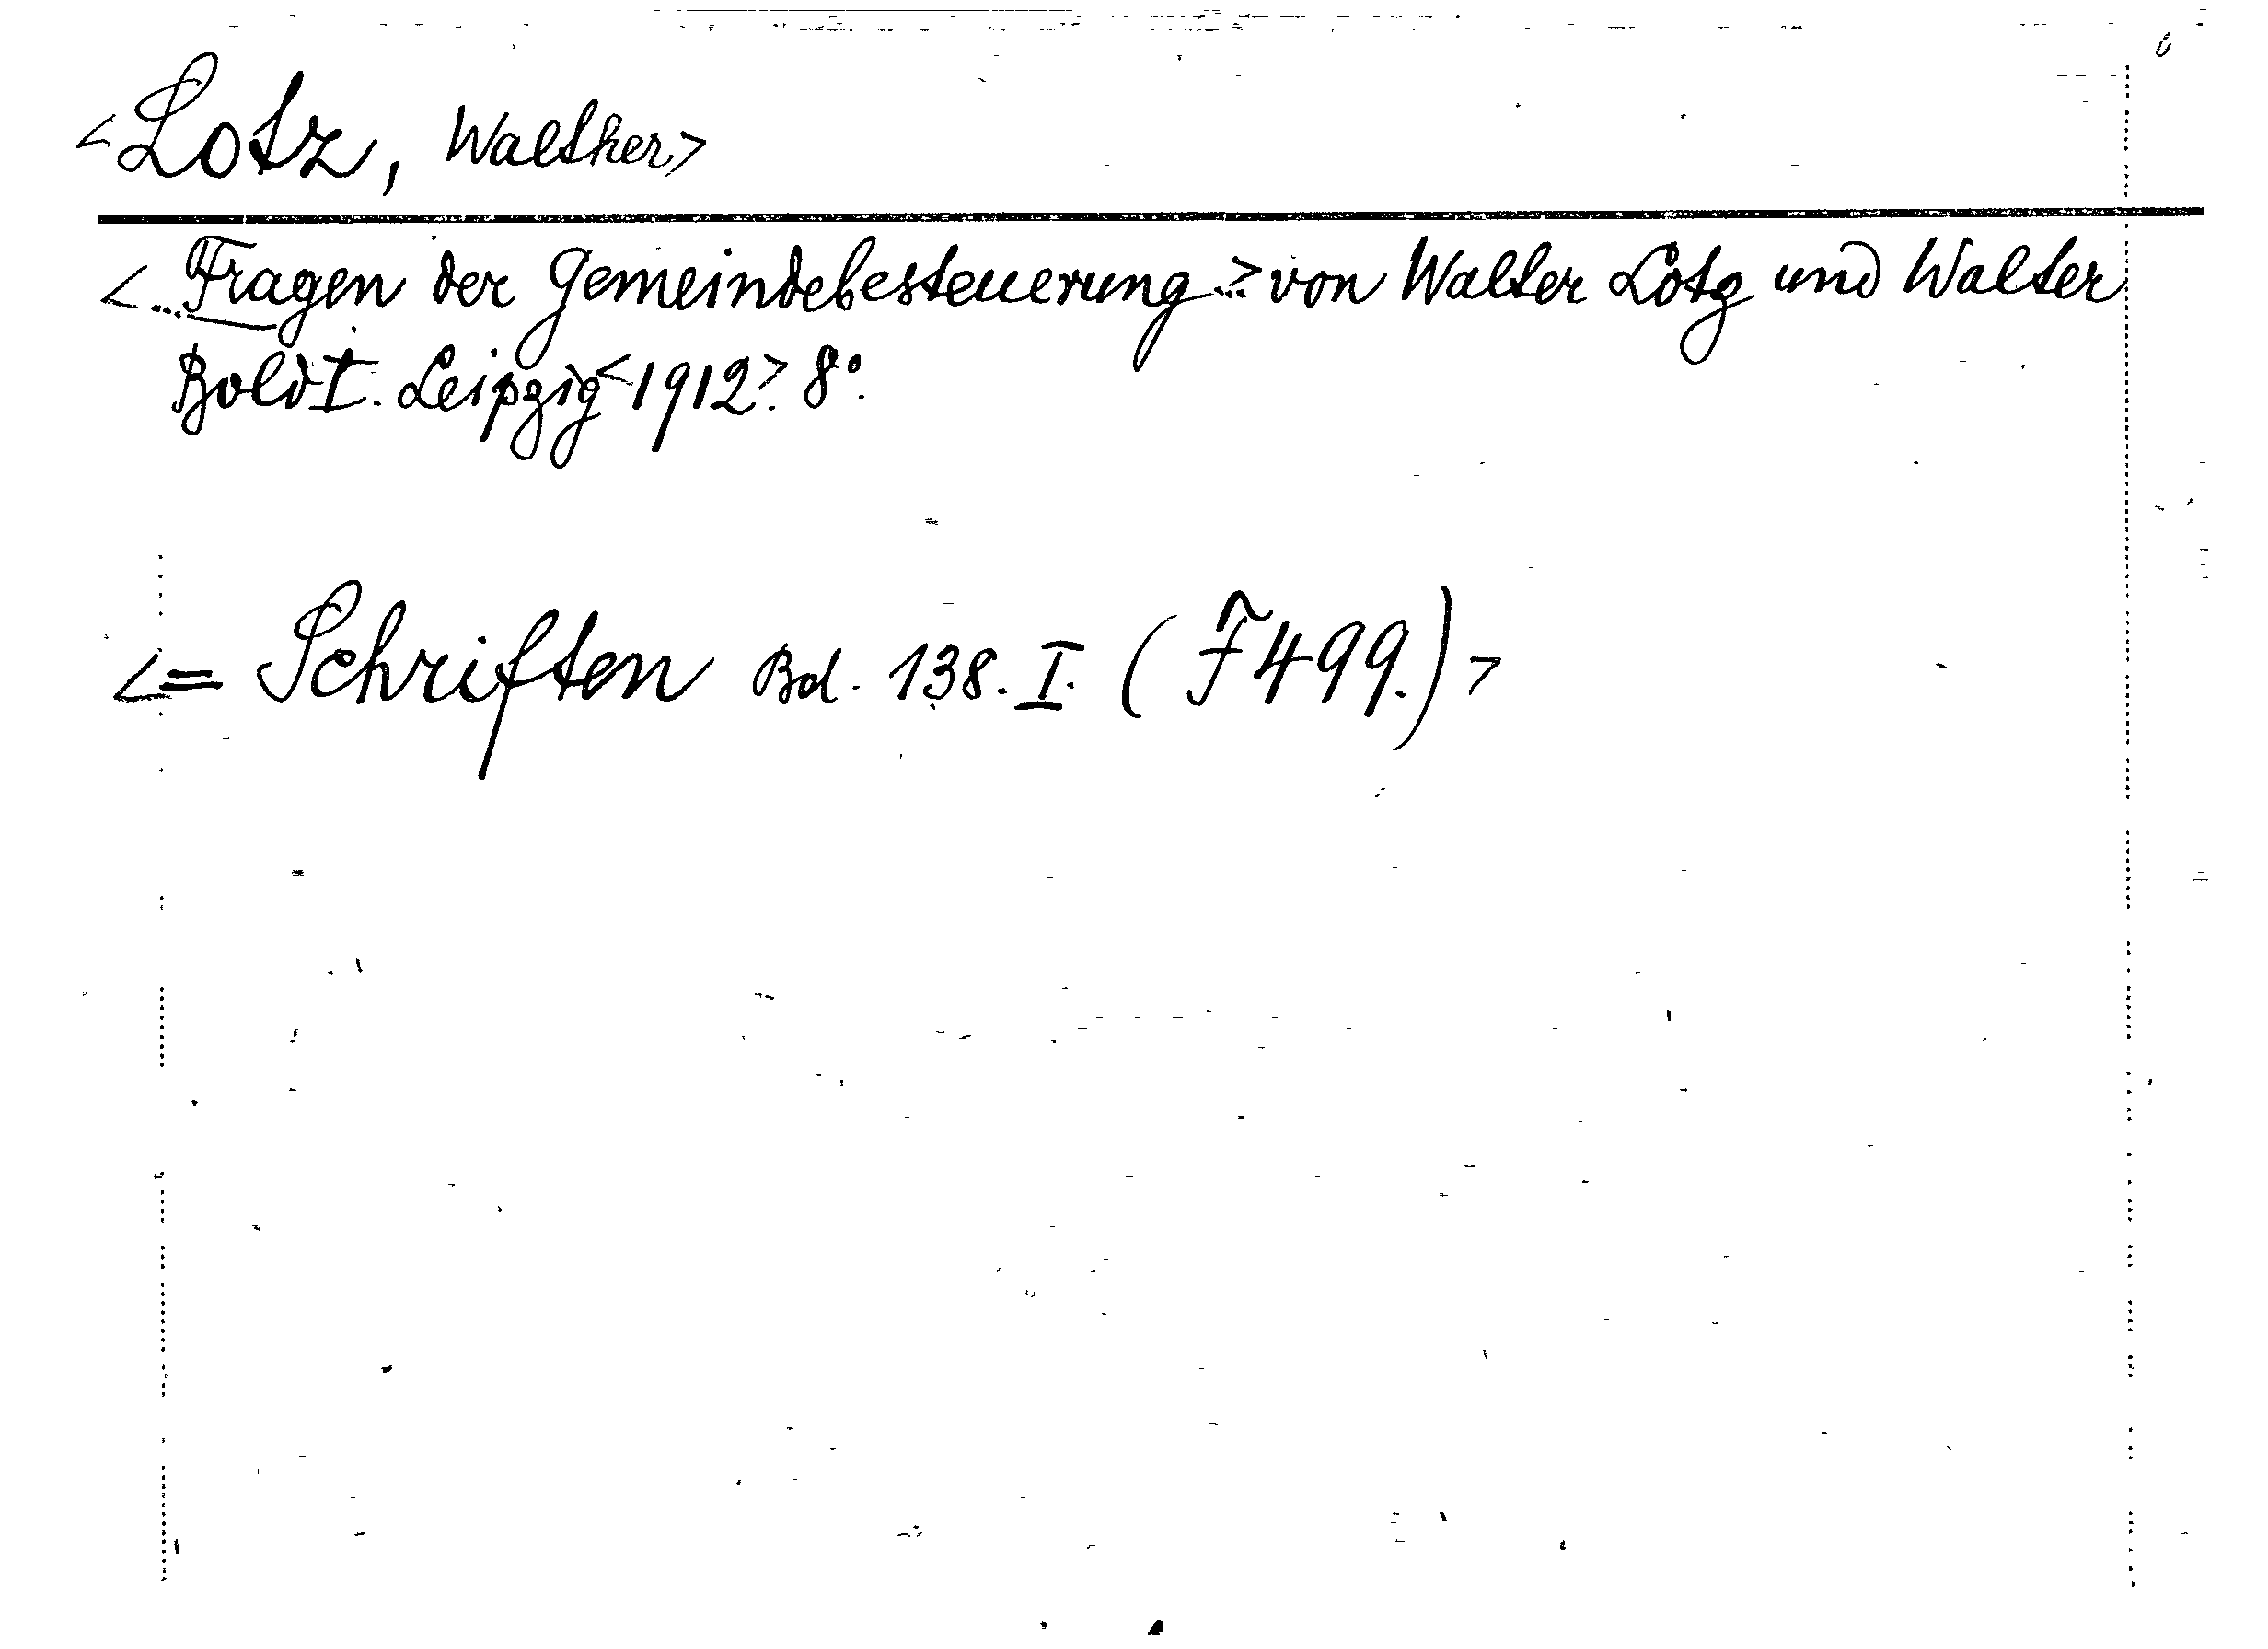 <Lotz, Walther>
<... Fragen der Gemeindebesteuerung ...> von Walter Lotz und Walter
Boldt. Leipzig <1912>. 8°.
<= Schriften Bd. 138. I. (F 499.)>